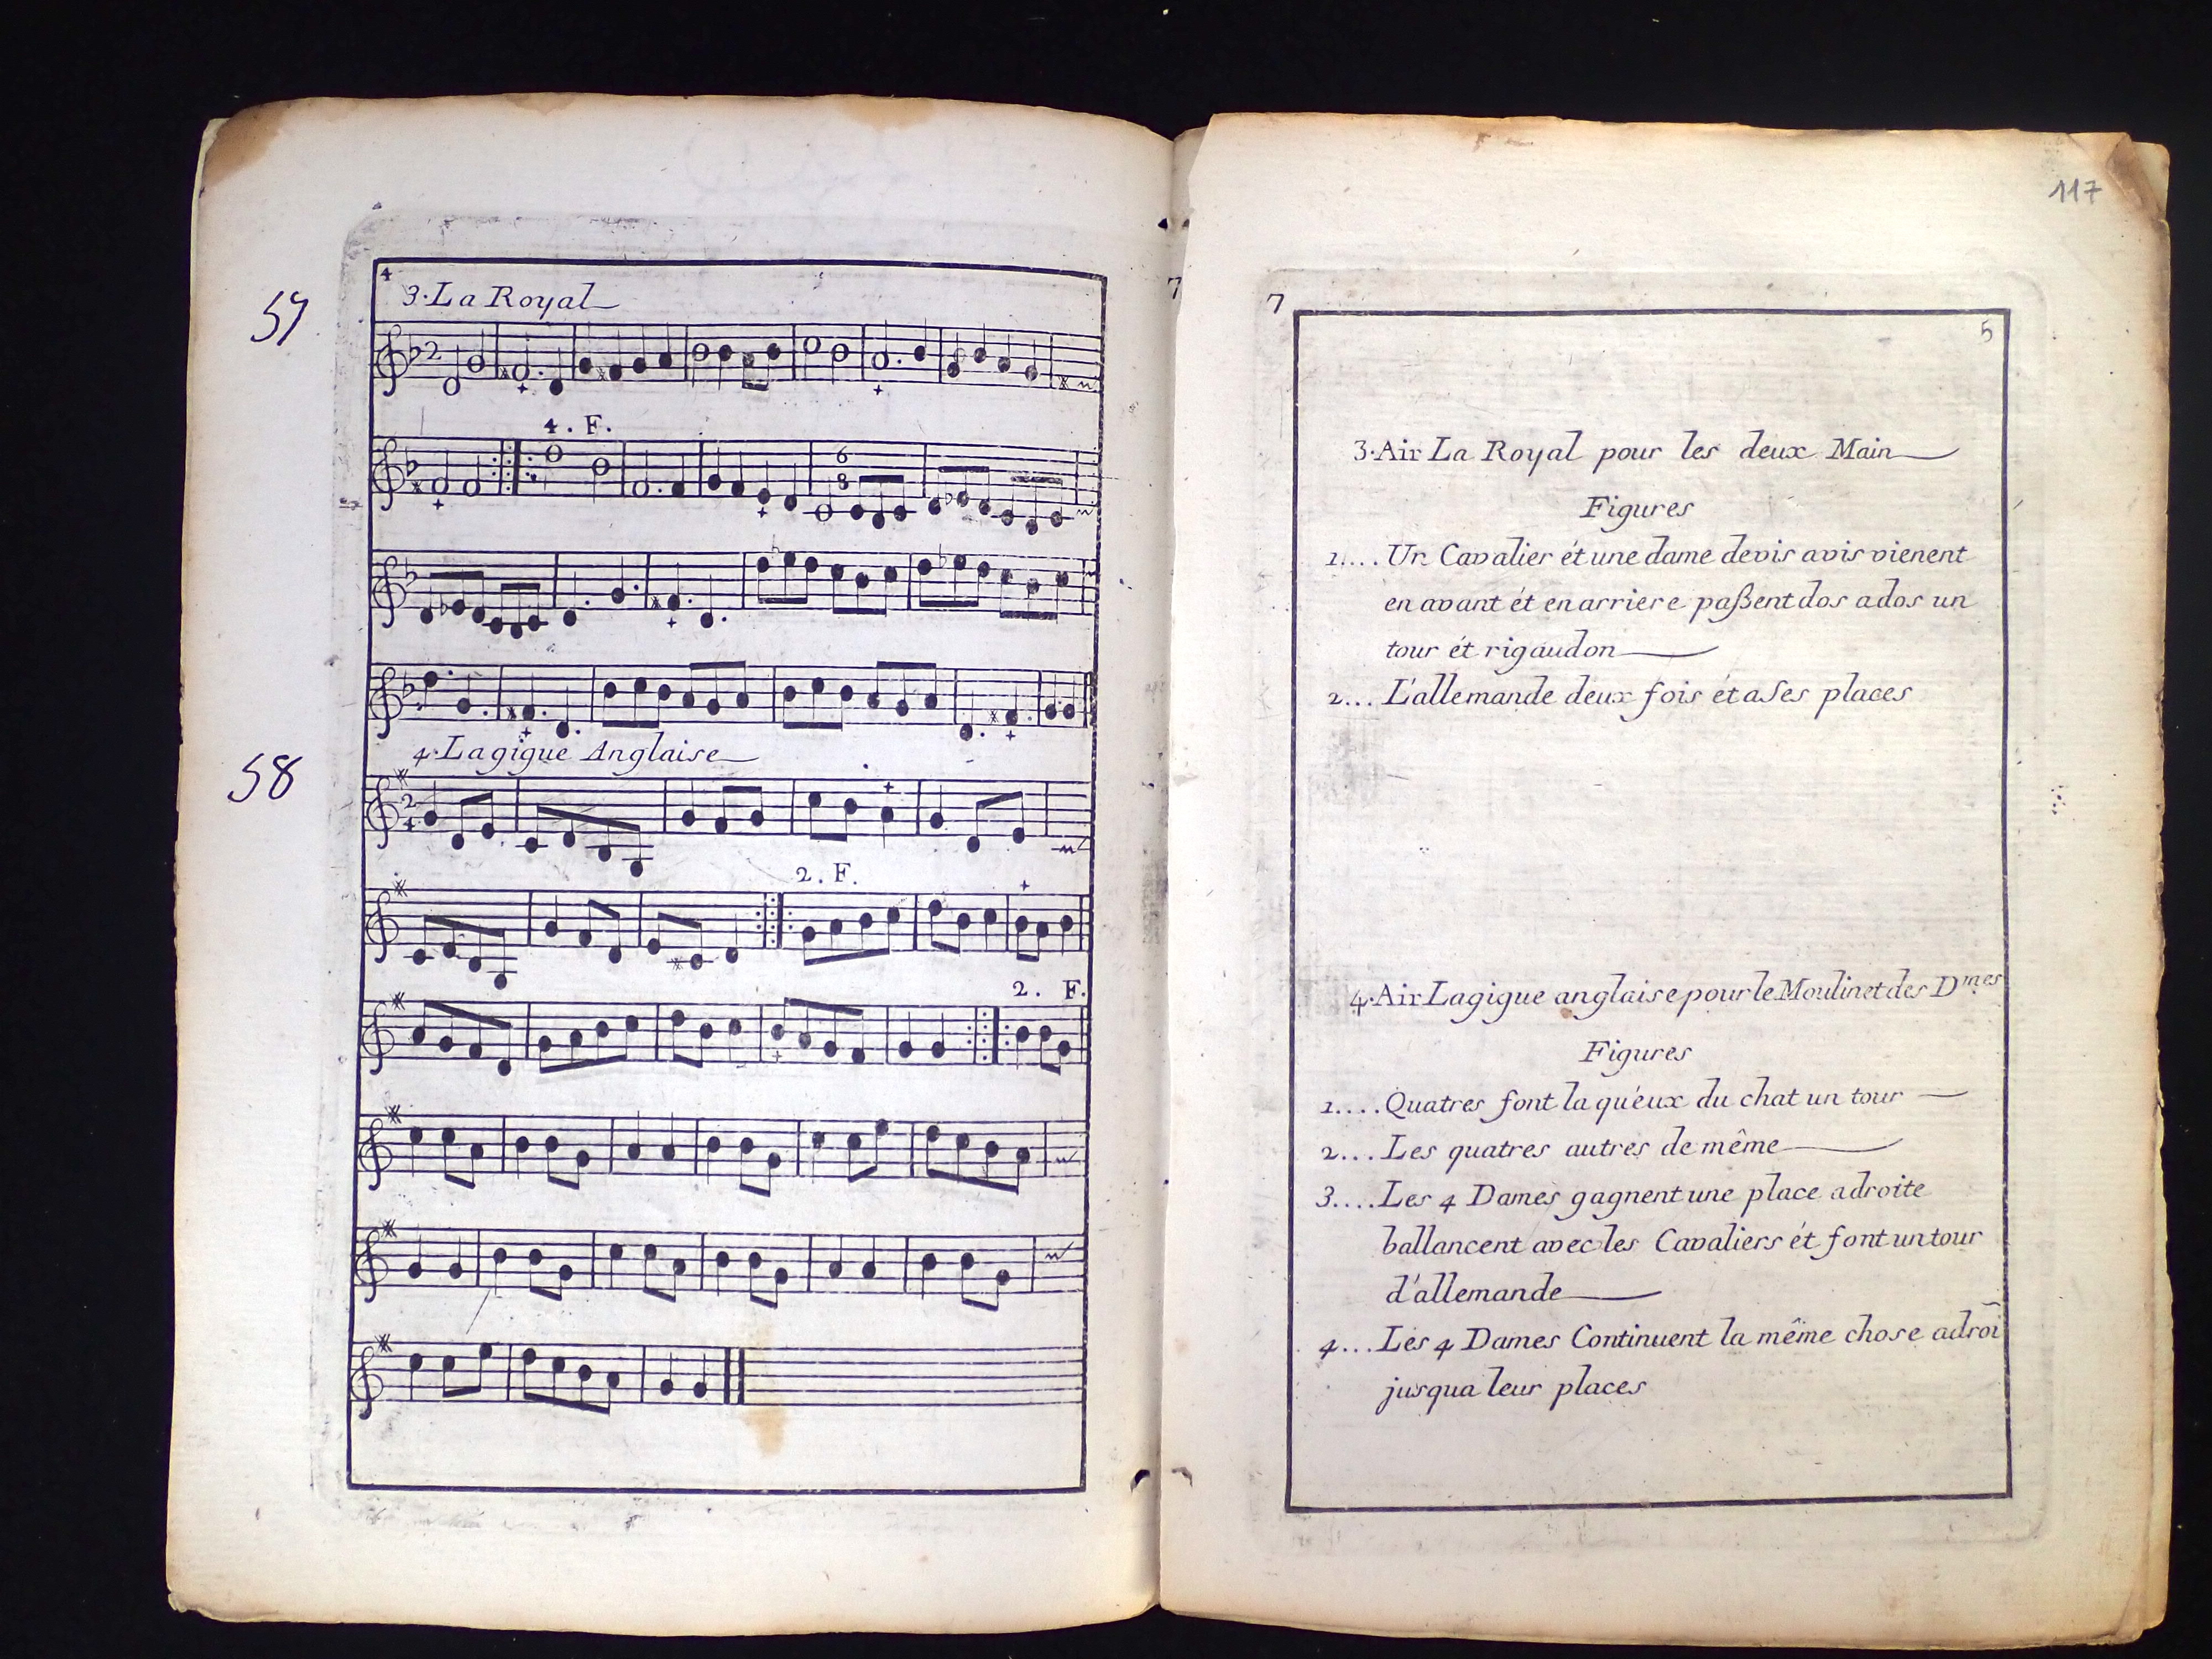 4
57
3. La Royal
2
4. F.
6
8
58
4. Lagigue Anglaise
2
4
2. F.
2. F.
117
7
7
5
3. Air La Royal pour les deux Main
Figures
1.... Un Cavalier ét une dame devis avis vienent
en avant ét en arriere paßent dos a dos un
tour ét rigaudon
2... L'allemande deux fois ét a ses places
4. Air Lagigue anglaise pour le Moulinet des Dmes
Figures
1.... Quatres font la quéux du chat un tour
2... Les quatres autres de même
3.... Les 4 Dames gagnent une place adroite
ballancent avec les Cavaliers ét font un tour
d'allemande
4... Les 4 Dames Continuent la même chose adroi
jusqua leur places